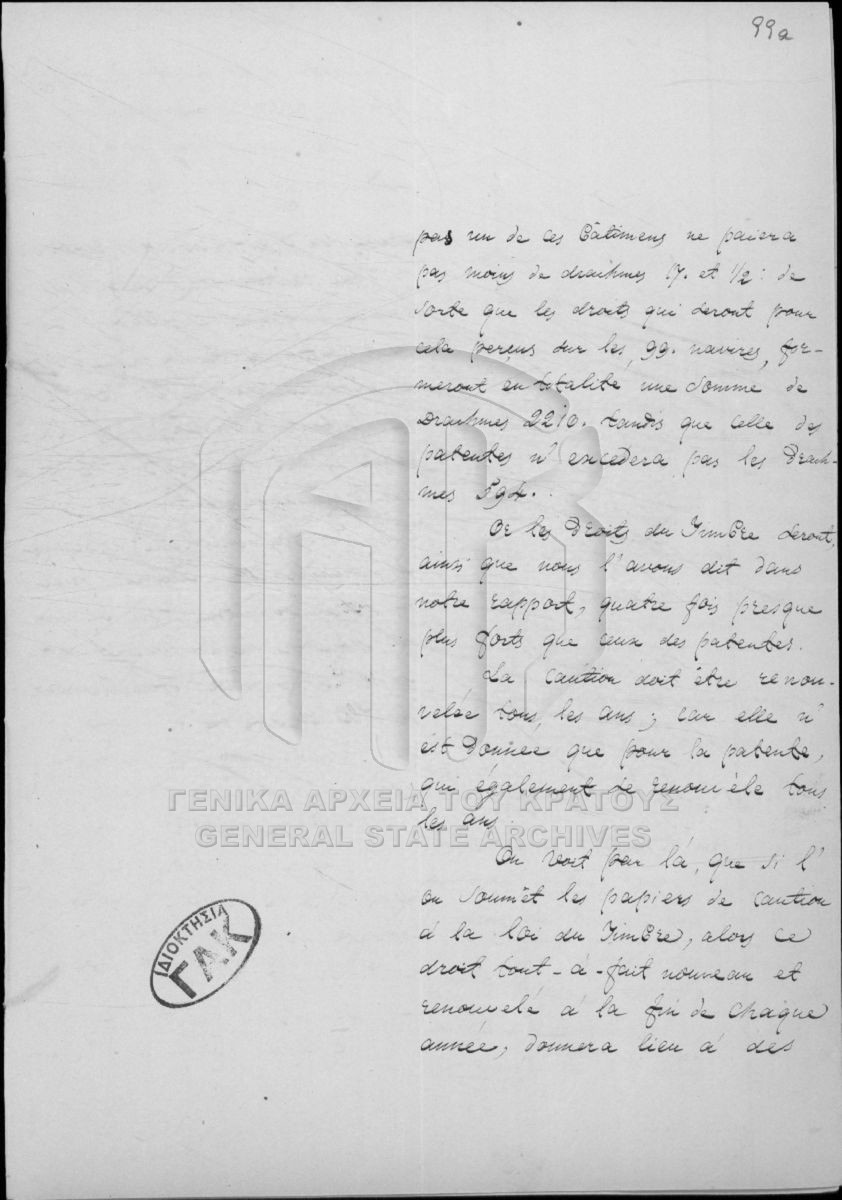 99a
pas un de ces bâtimens ne paiera
pas moins de drachmes 17. et 1/2: de
sorte que les droits qui seront pour
cela perçus sur les 99. navires, for-
meront en totalité une somme de
Drachmes 2210. tandis que celle des
patentes n'excedera pas les Drach-
mes 594.
Or les Droits du Timbre seront,
ainsi que nous l'avons dit dans
notre rapport, quatre fois presque
plus forts que ceux des patentes.
La caution doit être renou-
velée tous les ans; car elle n'
est donnée que pour la patente,
qui également se renouvèle tous
les ans.
On voit par là, que si l'
on soumet les papiers de caution
à la loi du Timbre, alors ce
droit tout-à-fait nouveau et
renouvelé à la fin de chaque
année, donnera lieu à des
ΓΕΝΙΚΑ ΑΡΧΕΙΑ ΤΟΥ ΚΡΑΤΟΥΣ
GENERAL STATE ARCHIVES
ΙΔΙΟΚΤΗΣΙΑ
ΓΑΚ